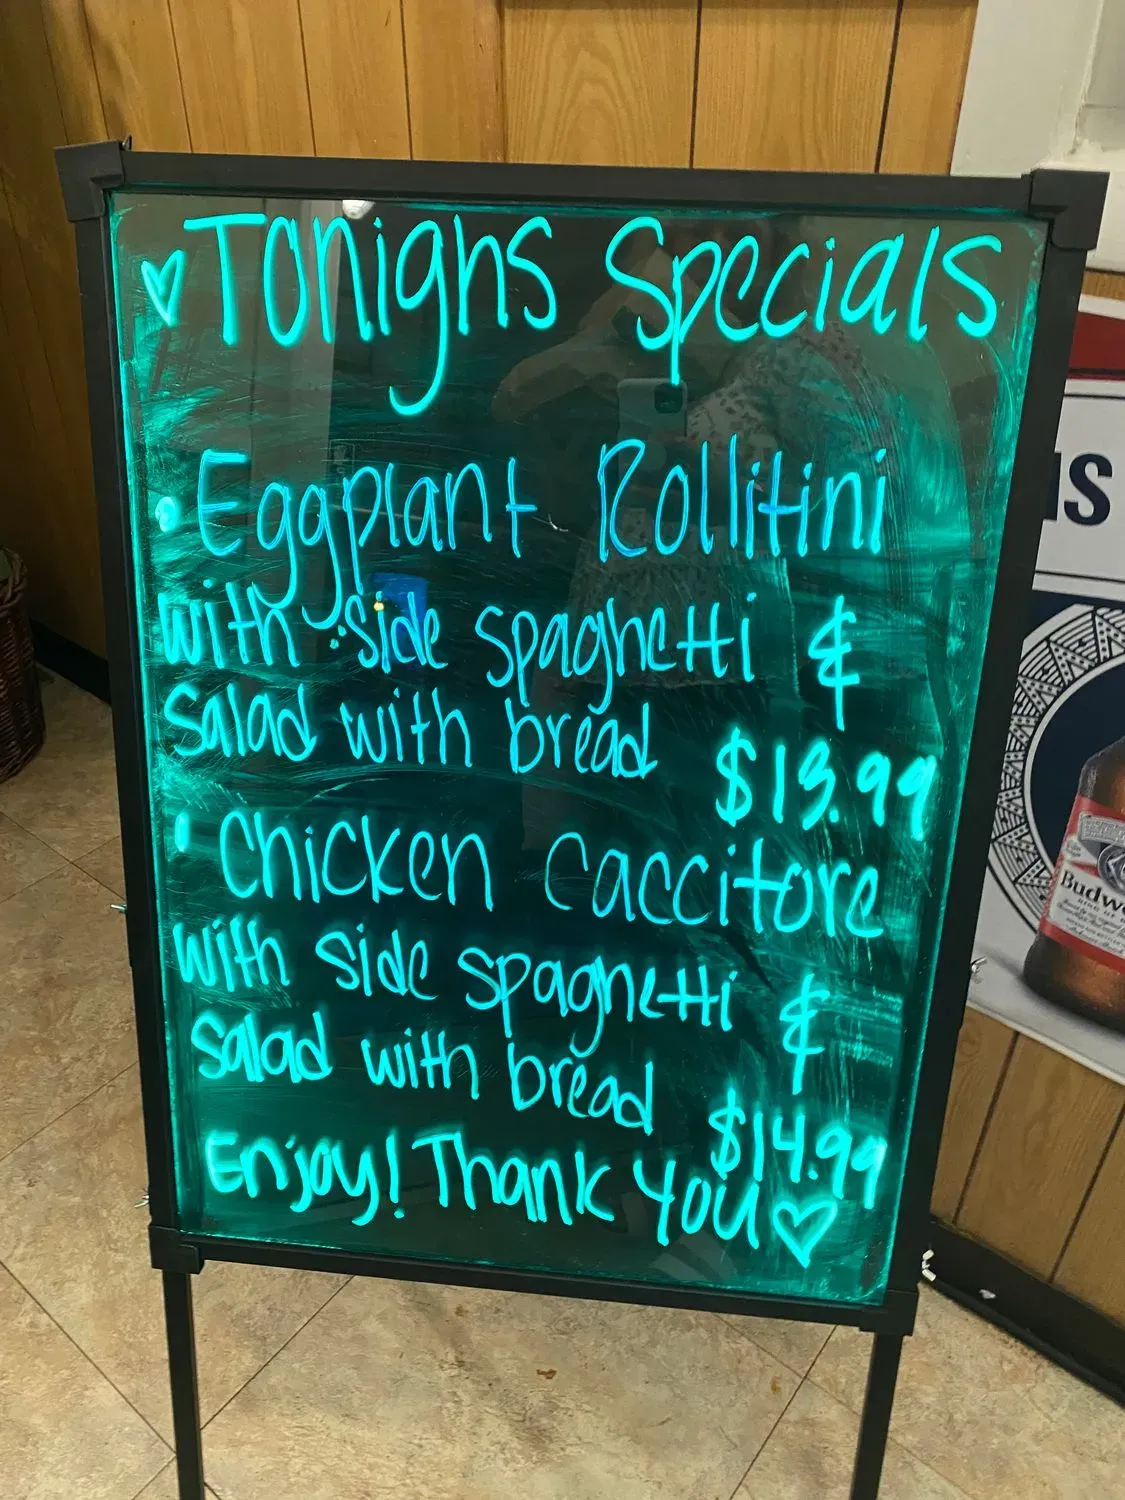 ♡Tonighs Specials
• Eggplant Rollitini
with side spaghetti &
Salad with bread
$13.99
• Chicken Caccitore
with side spaghetti &
Salad with bread
$14.99
Enjoy! Thank You♡
Budw